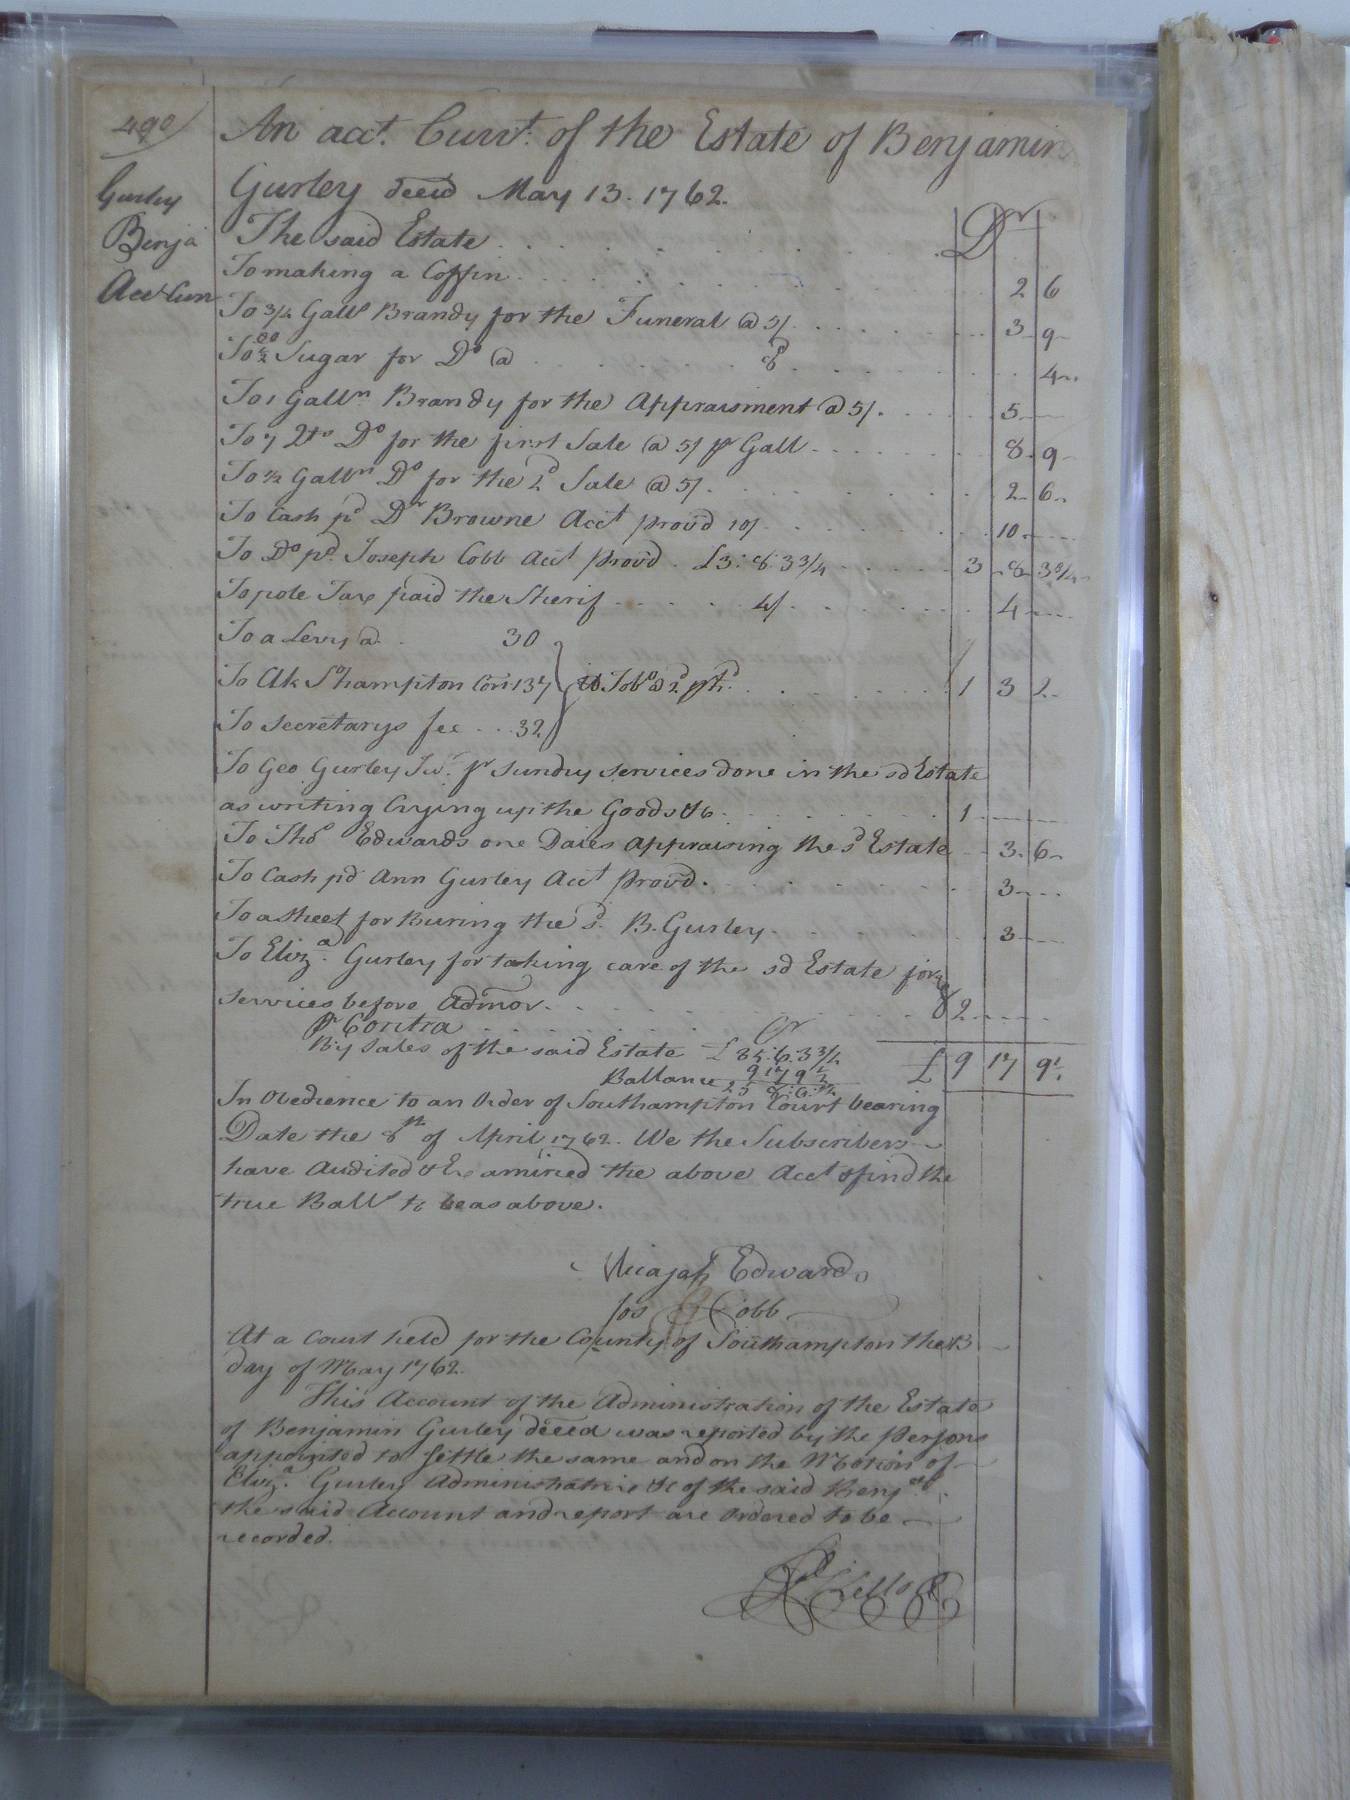 490
Gurley
Benja
Acct Curr
An acct. Curr.t of the Estate of Benjamin
Gurley decd May 13. 1762.
The said Estate Dr
To making a Coffin 2 6
To 3/4 Galls Brandy for the Funeral @ 5/. 3 9
To Sugar for Do @ 8d 4
To 1 Galln Brandy for the Appraisment @ 5/. 5
To 7 Qts Do for the first Sale @ 5/ pr Gall 8 9
To 1/2 Galln Do for the 2d Sale @ 5/. 2 6
To Cash pd Dr Browne Acct provd 10/. 10
To Do pd. Joseph Cobb Acct provd. £3:8:3 3/4 3 8 3 3/4
To pole Tax paid the Sherif 4/. 4
To a Levy @ 30
To Clk So hampton Cort 137 Tobo @ 2d p lb. 1 3 2
To Secretarys fee 32
To Geo Gurley Junr. pr sundry services done in the sd Estate
as writing Crying up the Goods &c 1
To Thos Edwards one Daies appraising the sd Estate 3 6
To Cash pd Ann Gurley Acct provd. 3
To a Sheet for Buring the sd. B. Gurley 3
To Eliza. Gurley for taking care of the sd Estate for
services before Admor. 2
Pr Contra Cr
By Sales of the said Estate £ 35:6:3 3/4 £ 9 17 9 1/2
Ballance 9 17 9 1/2
25 8:6:1/4
In Obedience to an Order of Southampton Court bearing
Date the 8th of April 1762. We the Subscribers
have Audited & Examined the above Acct & find the
true Balle to be as above.
Micajah Edwards
Jos Cobb
At a Court held for the County of Southampton the 13
day of May 1762.
This Account of the Administration of the Estate
of Benjamin Gurley deced was reported by the Persons
appointed to settle the same and on the Motion of
Eliza. Gurley Administratrix &c of the said Benja.
the said Account and report are Ordered to be
recorded.